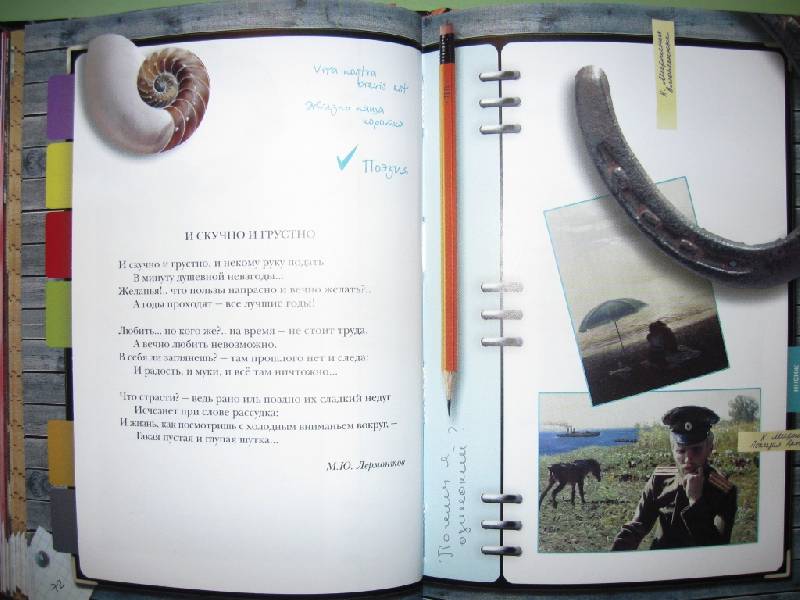 Vita nostra
brevis est
Жизнь наша
коротка
Поэзия
И СКУЧНО И ГРУСТНО
И скучно и грустно, и некому руку подать
В минуту душевной невзгоды...
Желанья!.. что пользы напрасно и вечно желать?..
А годы проходят – все лучшие годы!
Любить... но кого же?.. на время – не стоит труда,
А вечно любить невозможно.
В себя ли заглянешь? – там прошлого нет и следа:
И радость, и муки, и всё там ничтожно...
Что страсти? – ведь рано иль поздно их сладкий недуг
Исчезнет при слове рассудка;
И жизнь, как посмотришь с холодным вниманьем вокруг, –
Такая пустая и глупая шутка...
М.Ю. Лермонтов
Почему я
одинокий?